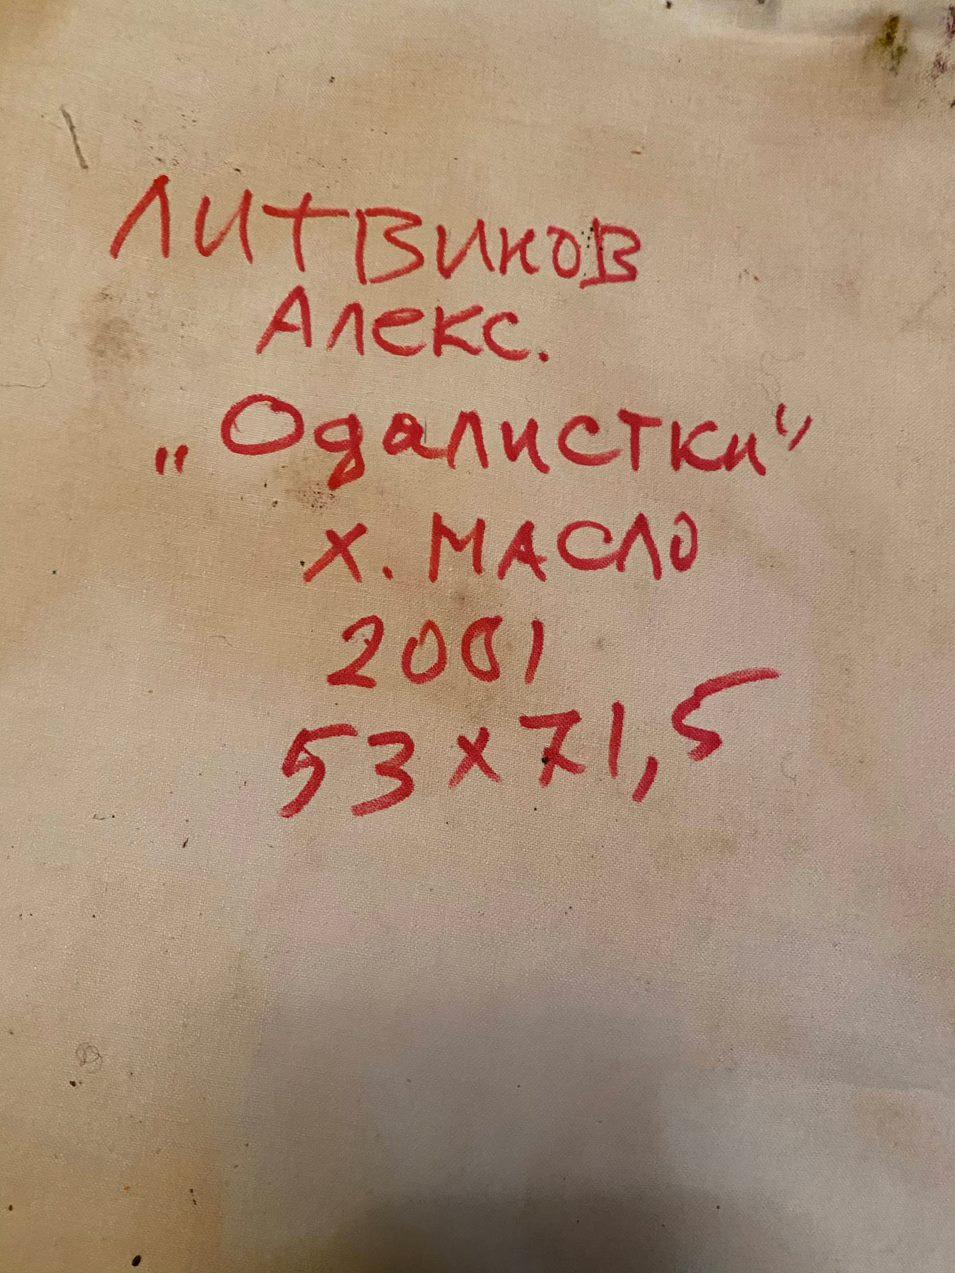 ЛИТВИНОВ
Алекс.
„Одалистки"
х. МАСЛО
2001
53 x 71,5